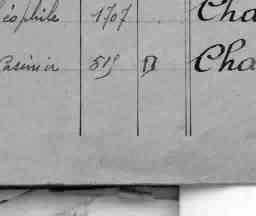 éophile 1707 Cha
Casimir 515 D Cha